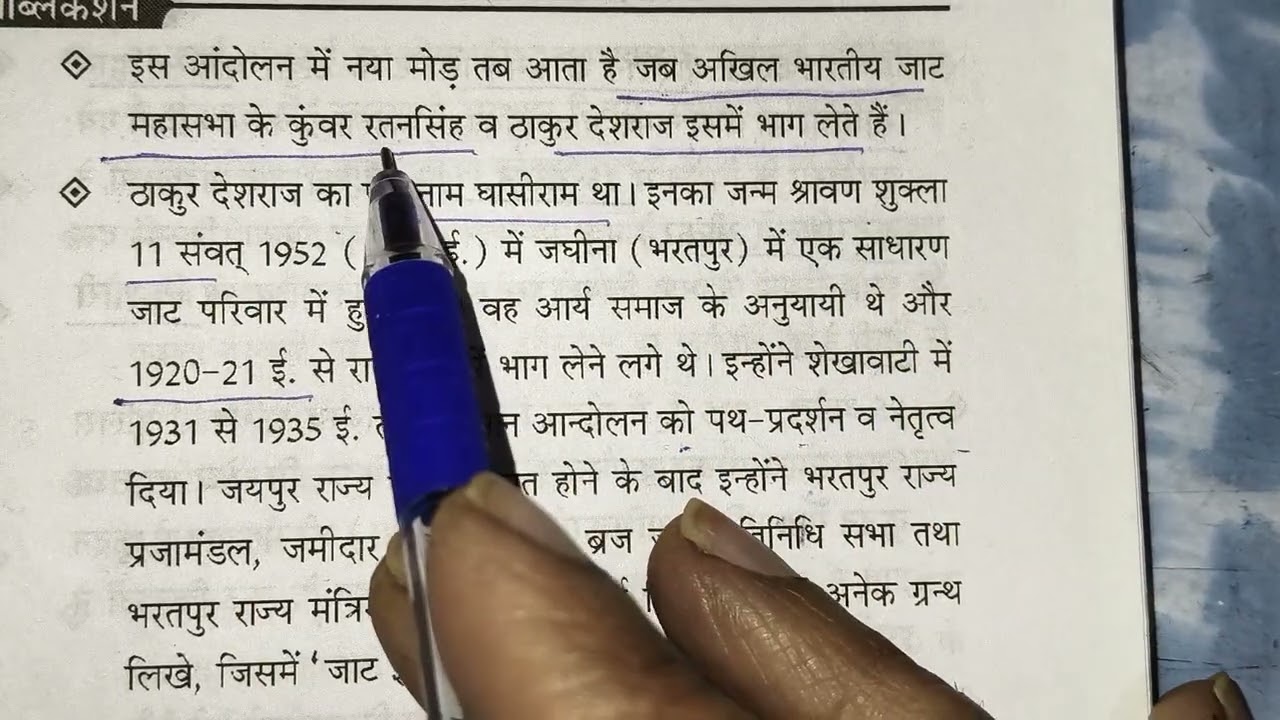 ब्लिकेशन
इस आंदोलन में नया मोड़ तब आता है जब अखिल भारतीय जाट
महासभा के कुंवर रतनसिंह व ठाकुर देशराज इसमें भाग लेते हैं।
ठाकुर देशराज का नाम घासीराम था। इनका जन्म श्रावण शुक्ला
11 संवत् 1952 ( ई.) में जघीना (भरतपुर) में एक साधारण
जाट परिवार में वह आर्य समाज के अनुयायी थे और
1920-21 ई. से भाग लेने लगे थे। इन्होंने शेखावाटी में
1931 से 1935 ई. आन्दोलन को पथ-प्रदर्शन व नेतृत्व
दिया। जयपुर राज्य होने के बाद इन्होंने भरतपुर राज्य
प्रजामंडल, जमीदार ब्रज सभा तथा
भरतपुर राज्य अनेक ग्रन्थ
लिखे, जिसमें ‘जाट